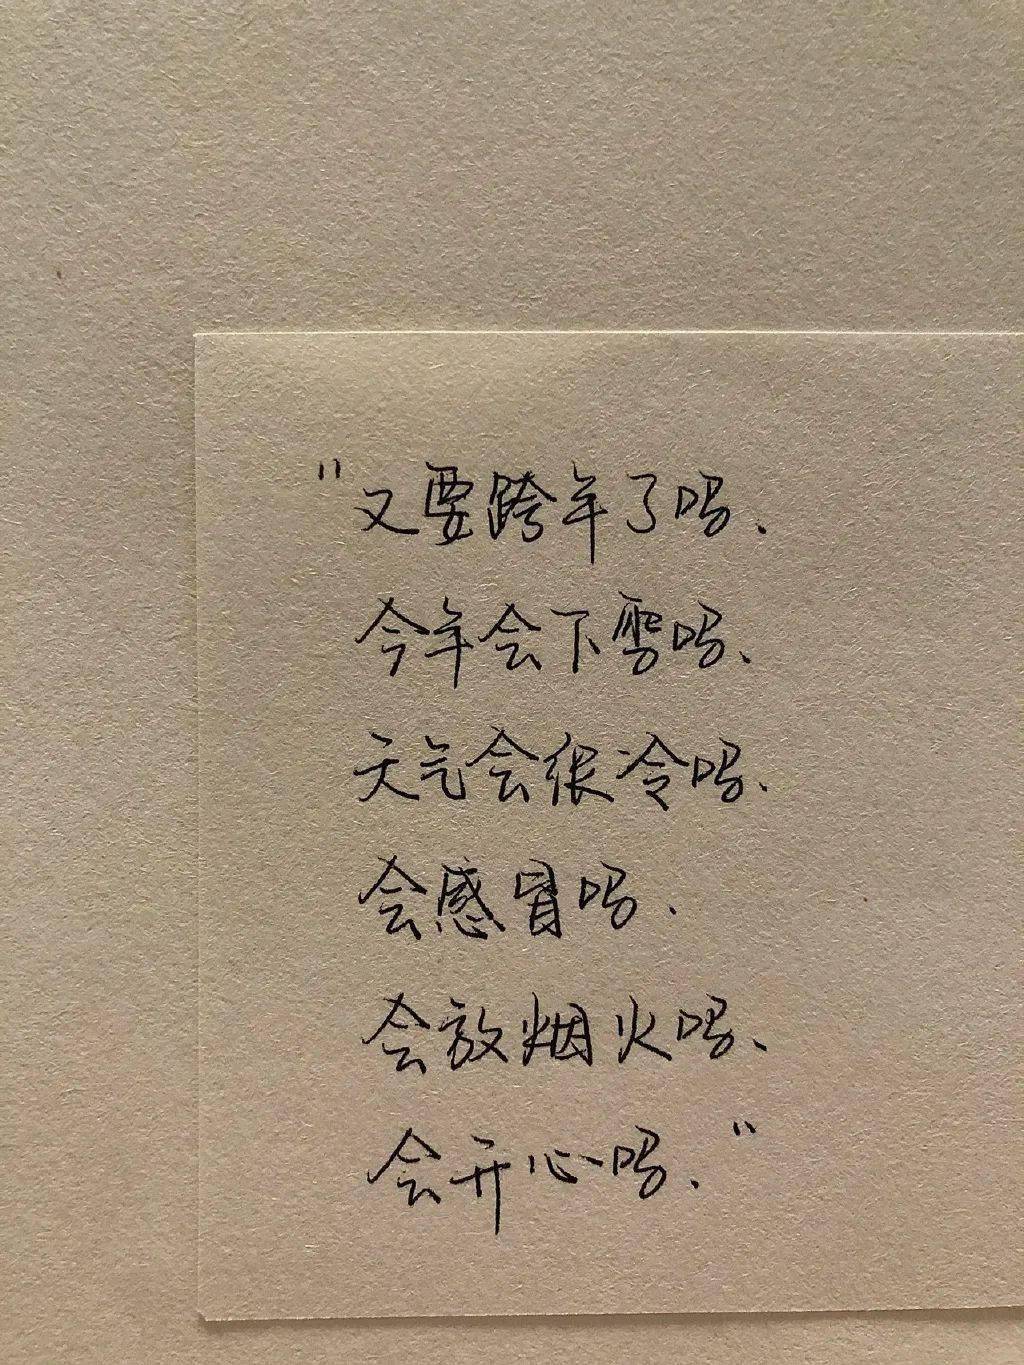 "又要跨年了吗、
今年会下雪吗、
天气会很冷吗、
会感冒吗、
会放烟火吗、
会开心吗、"